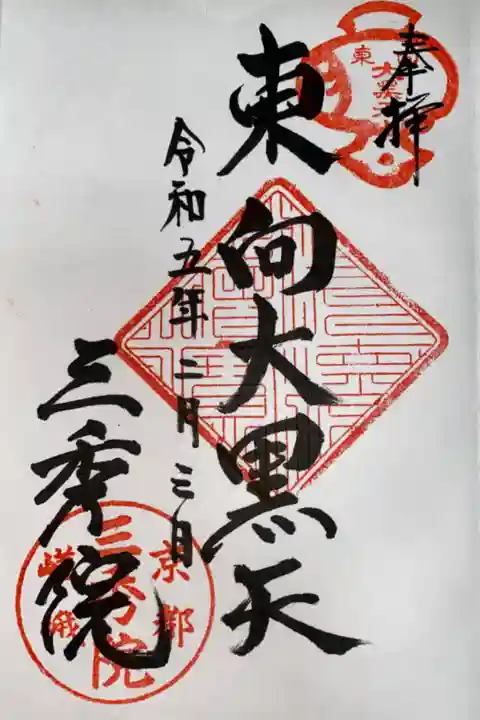 奉拝
東向大黒天
令和五年二月三日
三秀院
東
京都
嵯峨
三秀院